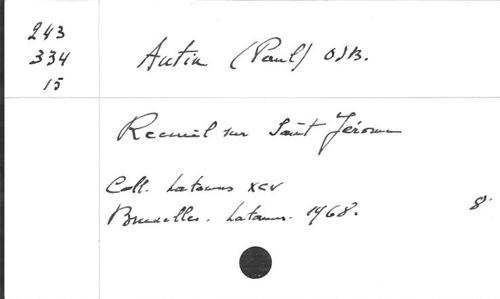 243
334
15
Antin (Paul) OSB.
Recueil sur Saint Jérome
Coll. Latomus XCV
Bruxelles. Latomus. 1968. 8°